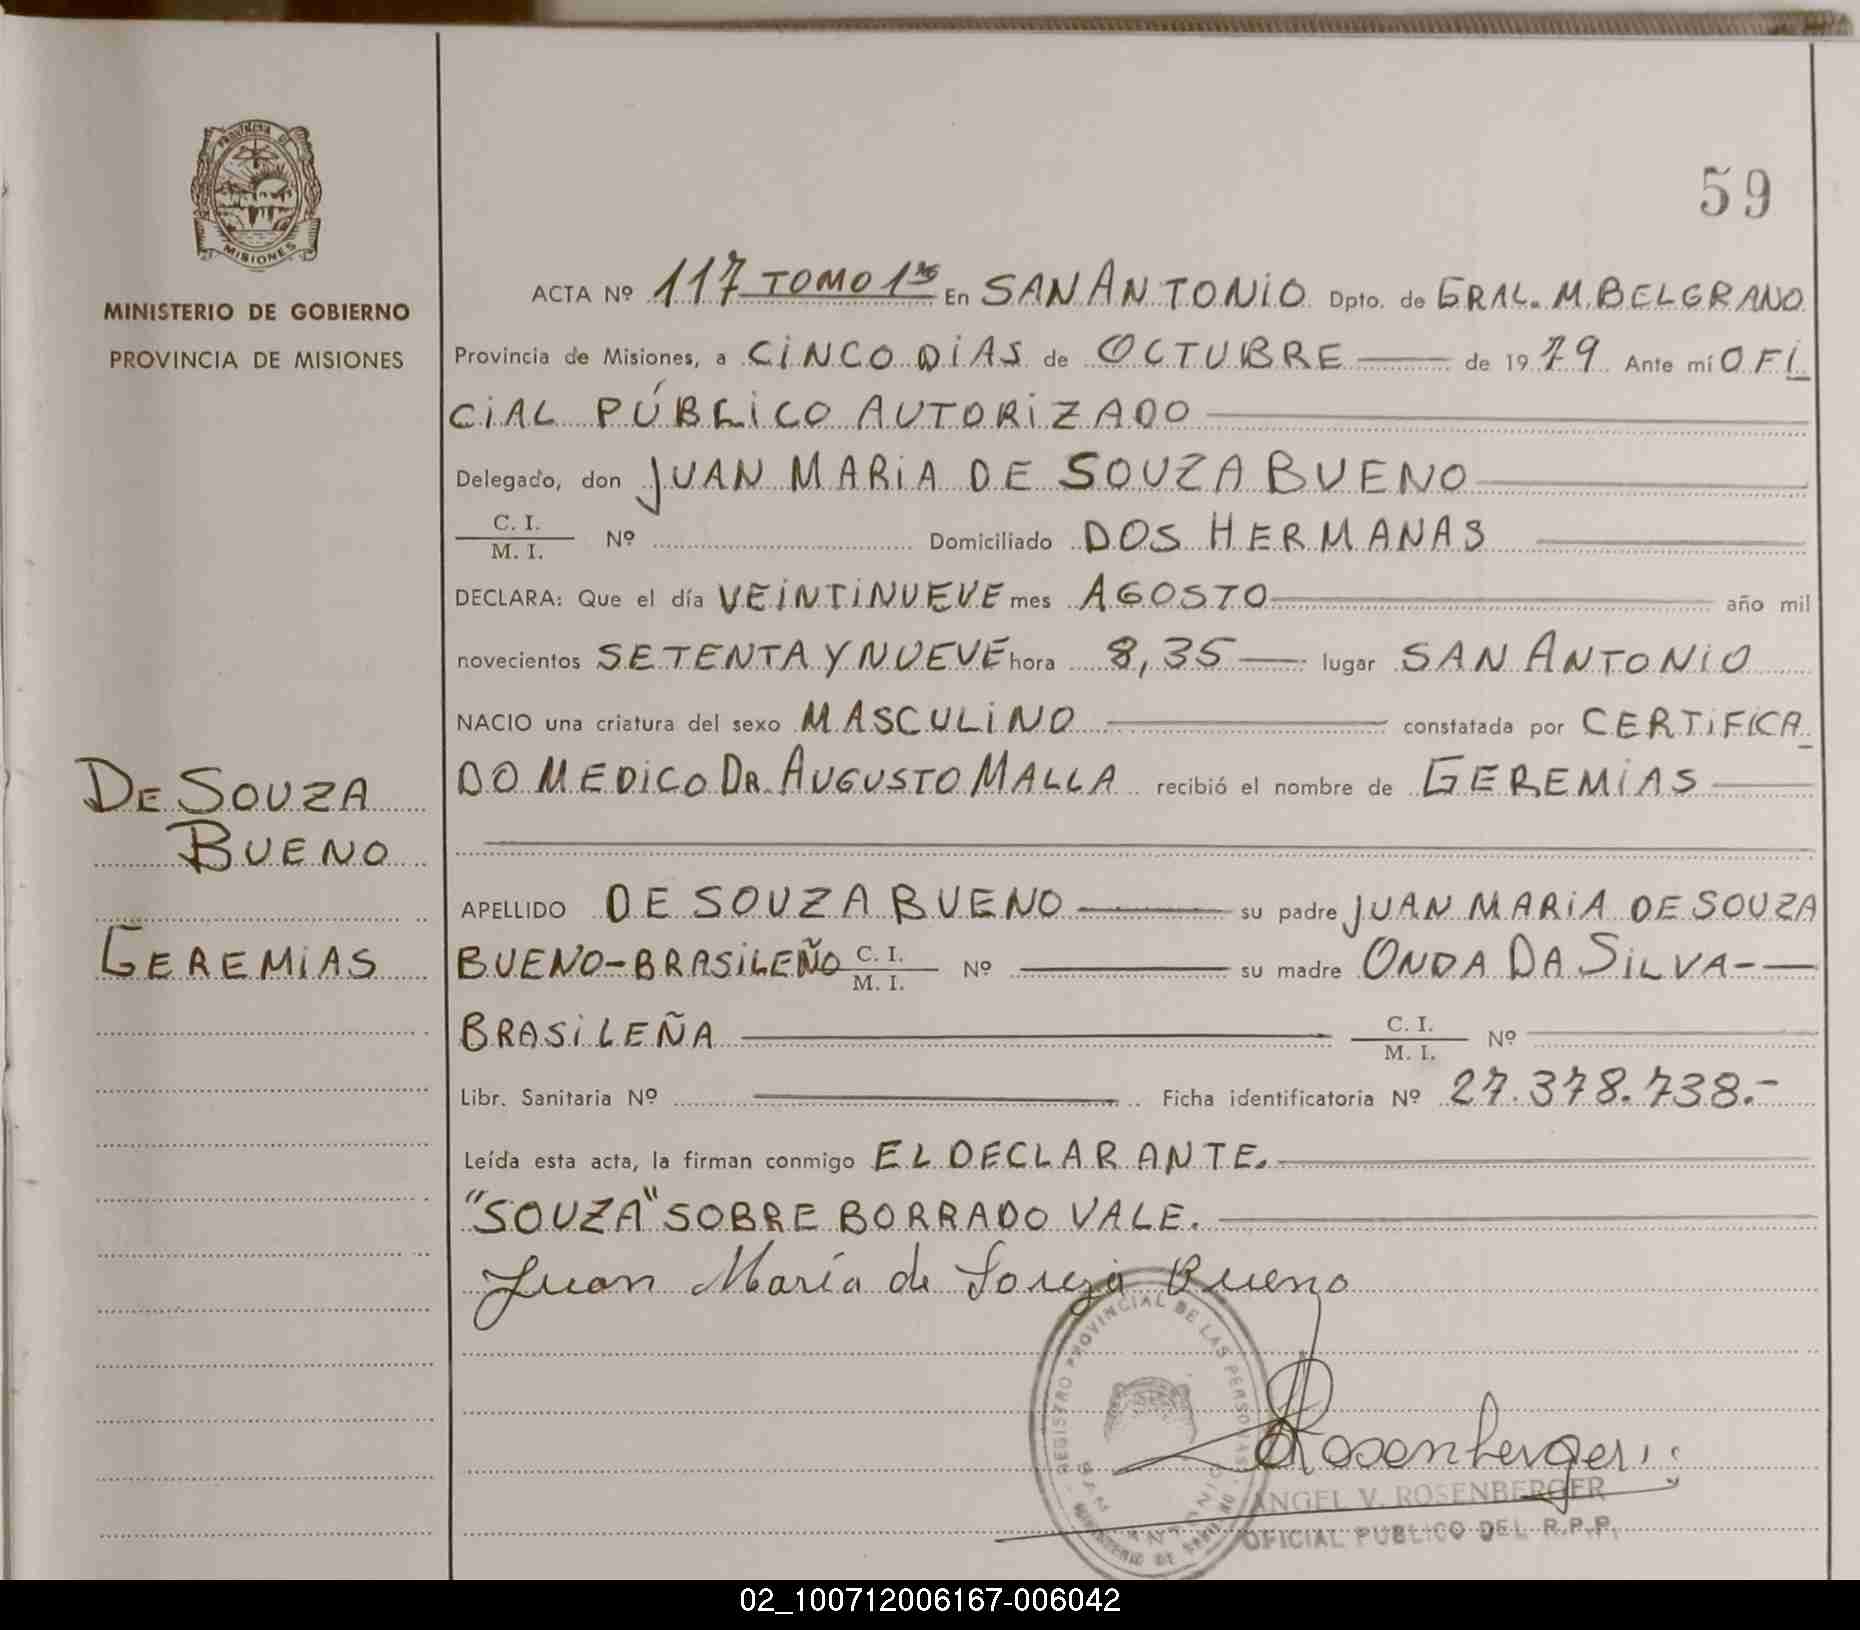 PROVINCIA DE
MISIONES
MINISTERIO DE GOBIERNO
PROVINCIA DE MISIONES
DE SOUZA
BUENO
GEREMIAS
59
ACTA Nº 117 TOMO 1º En SAN ANTONIO Dpto. de GRAL. M. BELGRANO
Provincia de Misiones, a CINCO DIAS de OCTUBRE de 1979 Ante mí OFI
CIAL PÚBLICO AUTORIZADO
Delegado, don JUAN MARIA DE SOUZA BUENO
C. I.
M. I. Nº Domiciliado DOS HERMANAS
DECLARA: Que el día VEINTINUEVE mes AGOSTO año mil
novecientos SETENTA Y NUEVE hora 8,35 lugar SAN ANTONIO
NACIO una criatura del sexo MASCULINO constatada por CERTIFICA
DO MEDICO DR. AUGUSTO MALLA recibió el nombre de GEREMIAS
APELLIDO DE SOUZA BUENO su padre JUAN MARIA DE SOUZA
BUENO-BRASILEÑO C. I. M. I. Nº su madre ONDA DA SILVA-
BRASILEÑA C. I. M. I. Nº
Libr. Sanitaria Nº Ficha identificatoria Nº 27.378.738.-
Leída esta acta, la firman conmigo EL DECLARANTE.
"SOUZA" SOBRE BORRADO VALE.
Juan María de Souza Bueno
REGISTRO PROVINCIAL DE LAS PERSONAS
Rosenberger
ANGEL V. ROSENBERGER
OFICIAL PUBLICO DEL R.P.P.
02_100712006167-006042